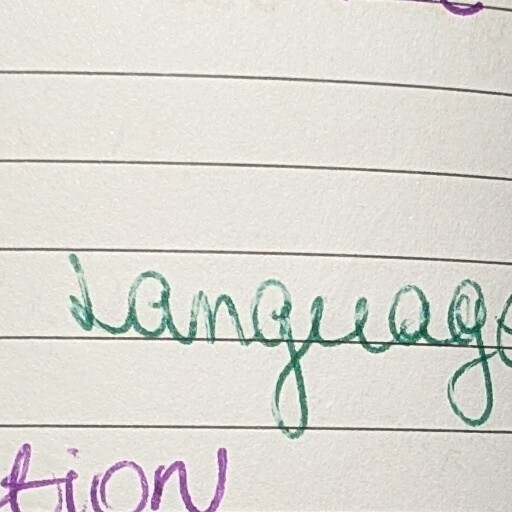 Language
tion